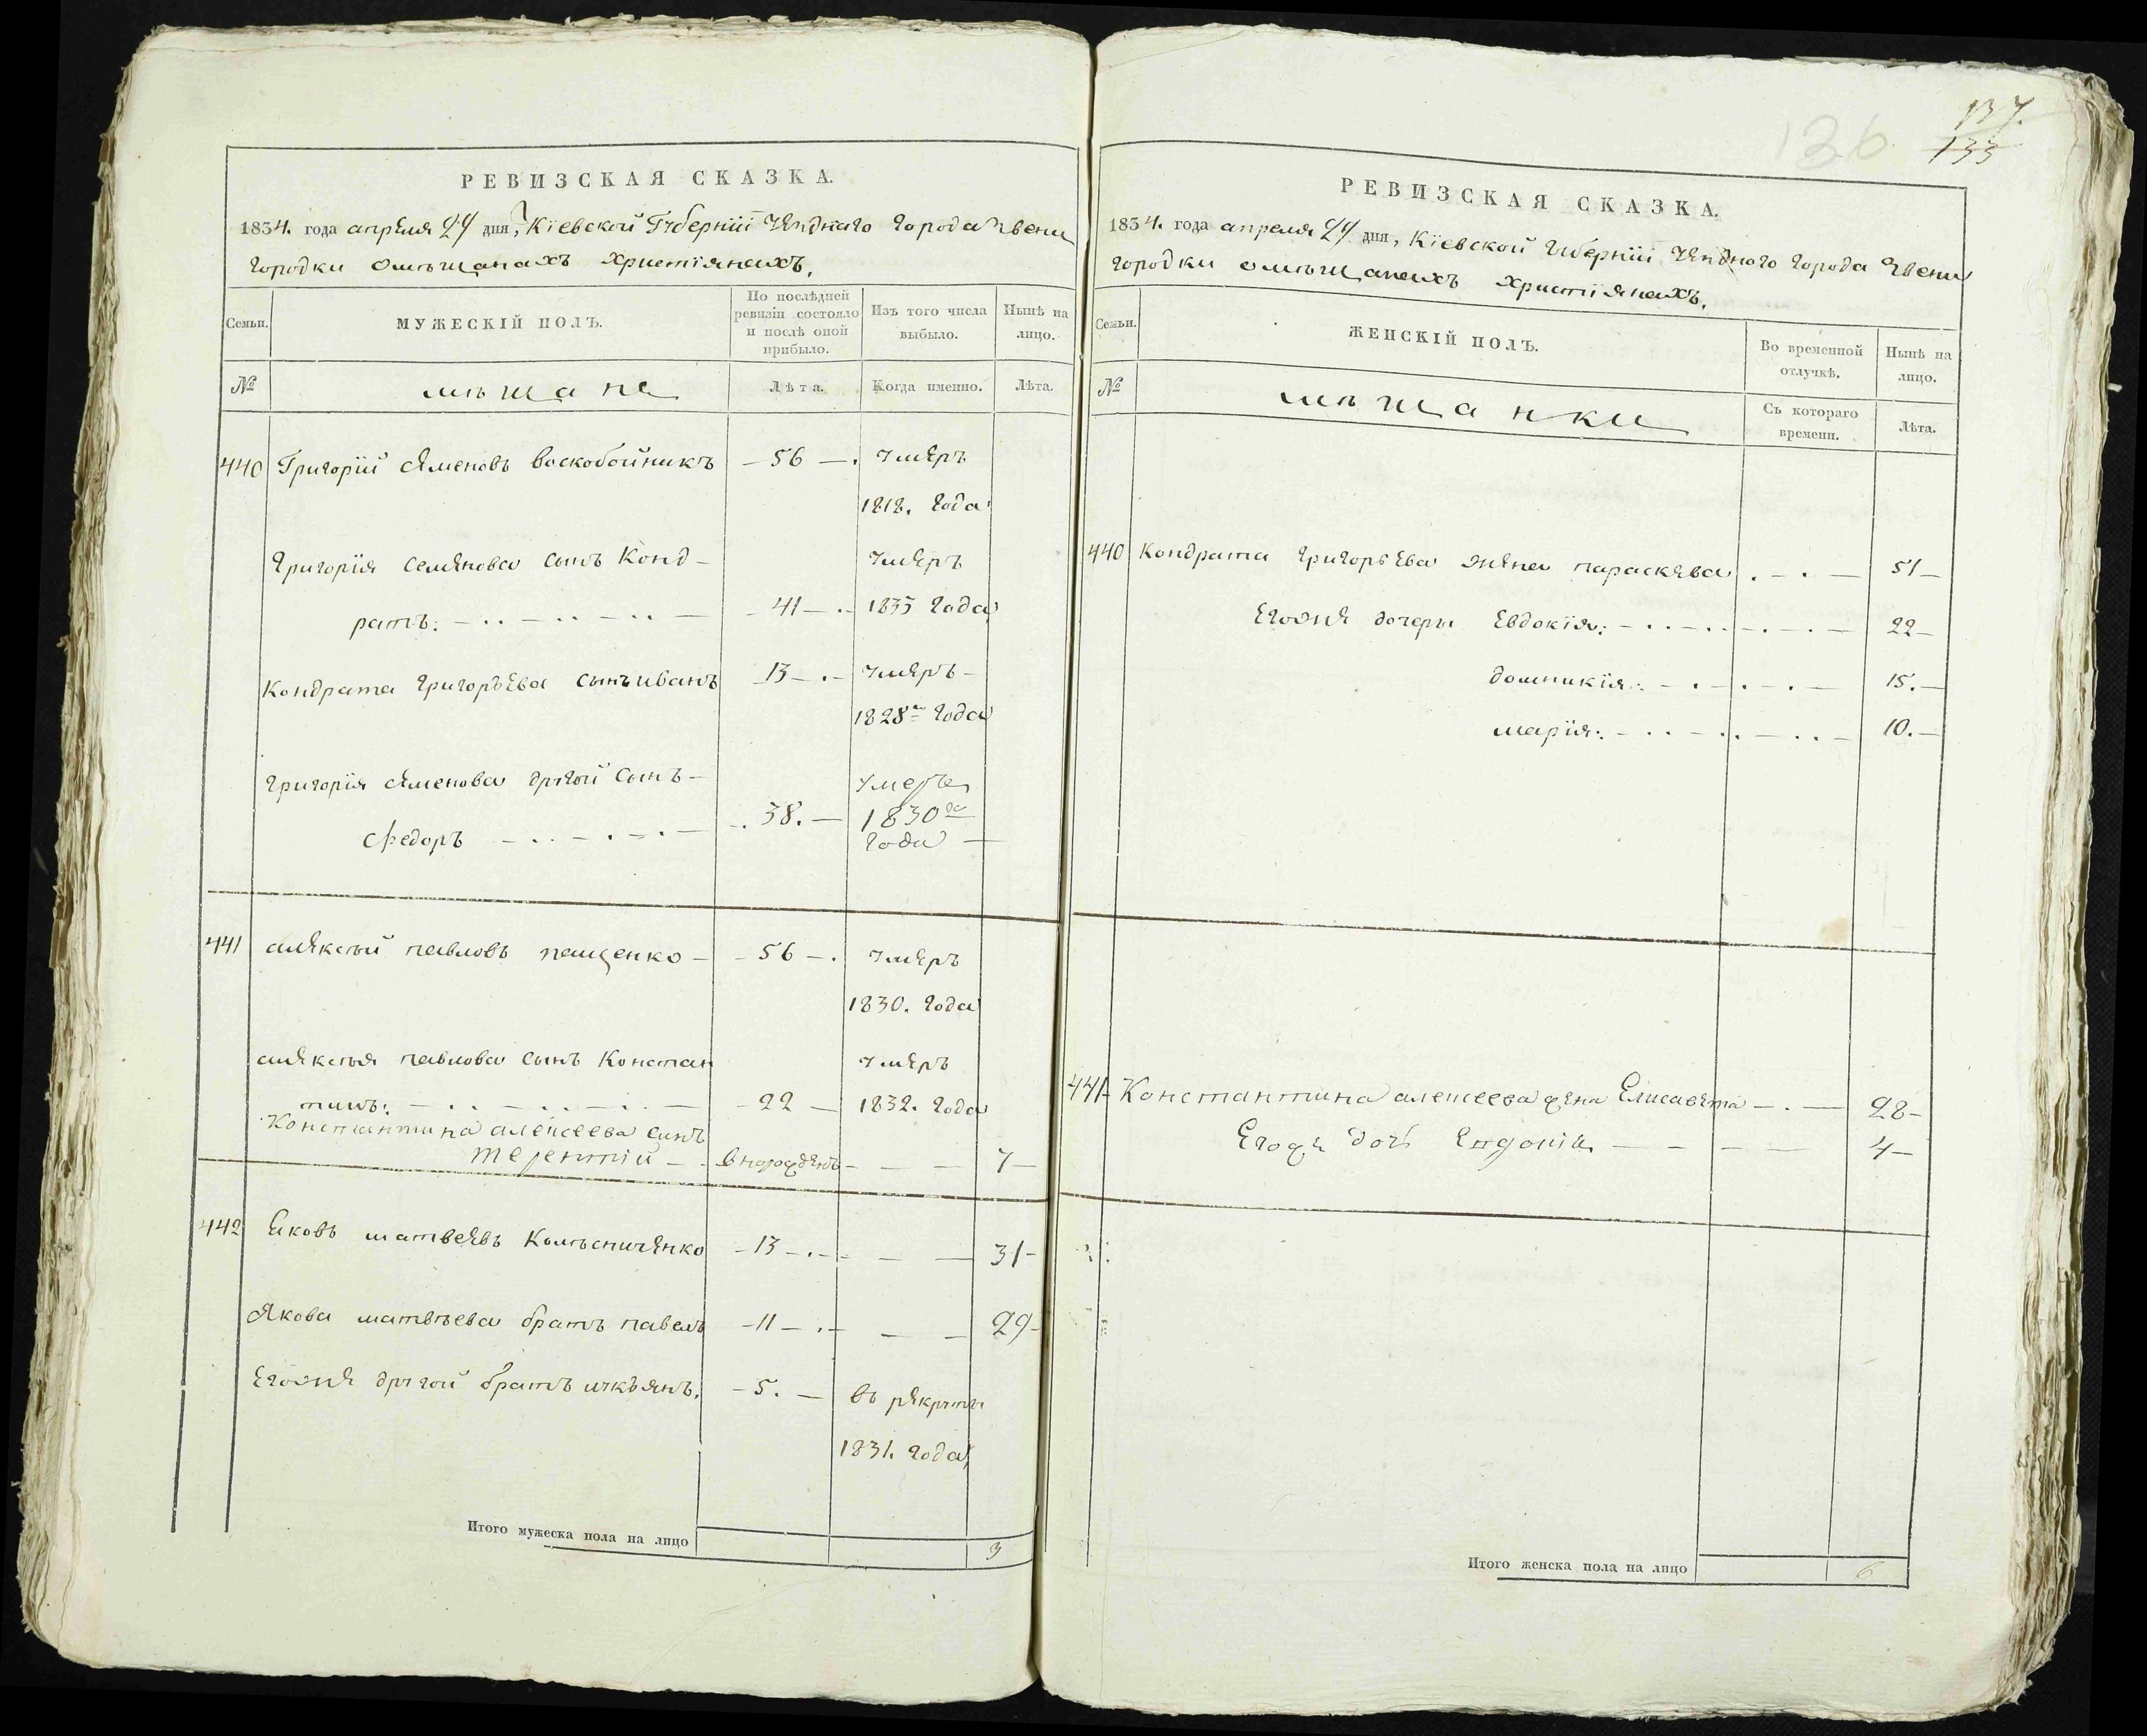 137.
133
136
РЕВИЗСКАЯ СКАЗКА.
1834. года апреля 27 дня, Кіевской Губерніи Уезднаго города Звени
городки омѣщанахъ христіянахъ.
Семьи.
МУЖЕСКІЙ ПОЛЪ.
По послѣдней
ревизіи состояло
и послѣ оной
прибыло.
Изъ того числа
выбыло.
Нынѣ на
лицо.
№
мѣщане
Лѣта.
Когда именно.
Лѣта.
440 Григорій Семеновъ Воскобойникъ — 56 — . умеръ
1818. года
Григорія Семенова сынъ Конд- умеръ
ратъ: — 41 — . 1833 года
Кондрата Григорьева сынъ иванъ 13 — . — умеръ —
1828го года
Григорія Семенова другой сынъ — умеръ
Федоръ — . 38. — 1830го
года —
441 алексѣй павловъ пащенко — 56 — . умеръ
1830. года
алексѣя павлова сынъ Констан умеръ
тинъ: — 22 — 1832. года
Константина алексеева сынъ
терентій — вновородженъ — — — 7 —
442 Яковъ матвеевъ Колѣсниченко — 13 — . — — — 31 —
Якова матвѣева братъ павелъ — 11 — . — — — 29 —
Егожъ другой братъ лукъянъ. — 5. — въ рекруты
1831. года
Итого мужеска пола на лицо 3
РЕВИЗСКАЯ СКАЗКА.
1834. года апреля 27 дня, Кіевской Губерніи Уезднаго города Звени
городки омѣщанахъ христіянахъ.
Семьи.
ЖЕНСКІЙ ПОЛЪ.
Во временной
отлучкѣ.
Нынѣ на
лицо.
№
мѣщанки
Съ котораго
времени.
Лѣта.
440 Кондрата Григорьева жена параскева . — . — 51 —
Егоже дочери Евдокія: — 22 —
домникія: — 15. —
марія: — 10. —
441 Константина алексеева жена Елисавета — . — 28 —
Егоже дочь Евдокія — — — — 4 —
Итого женска пола на лицо 6